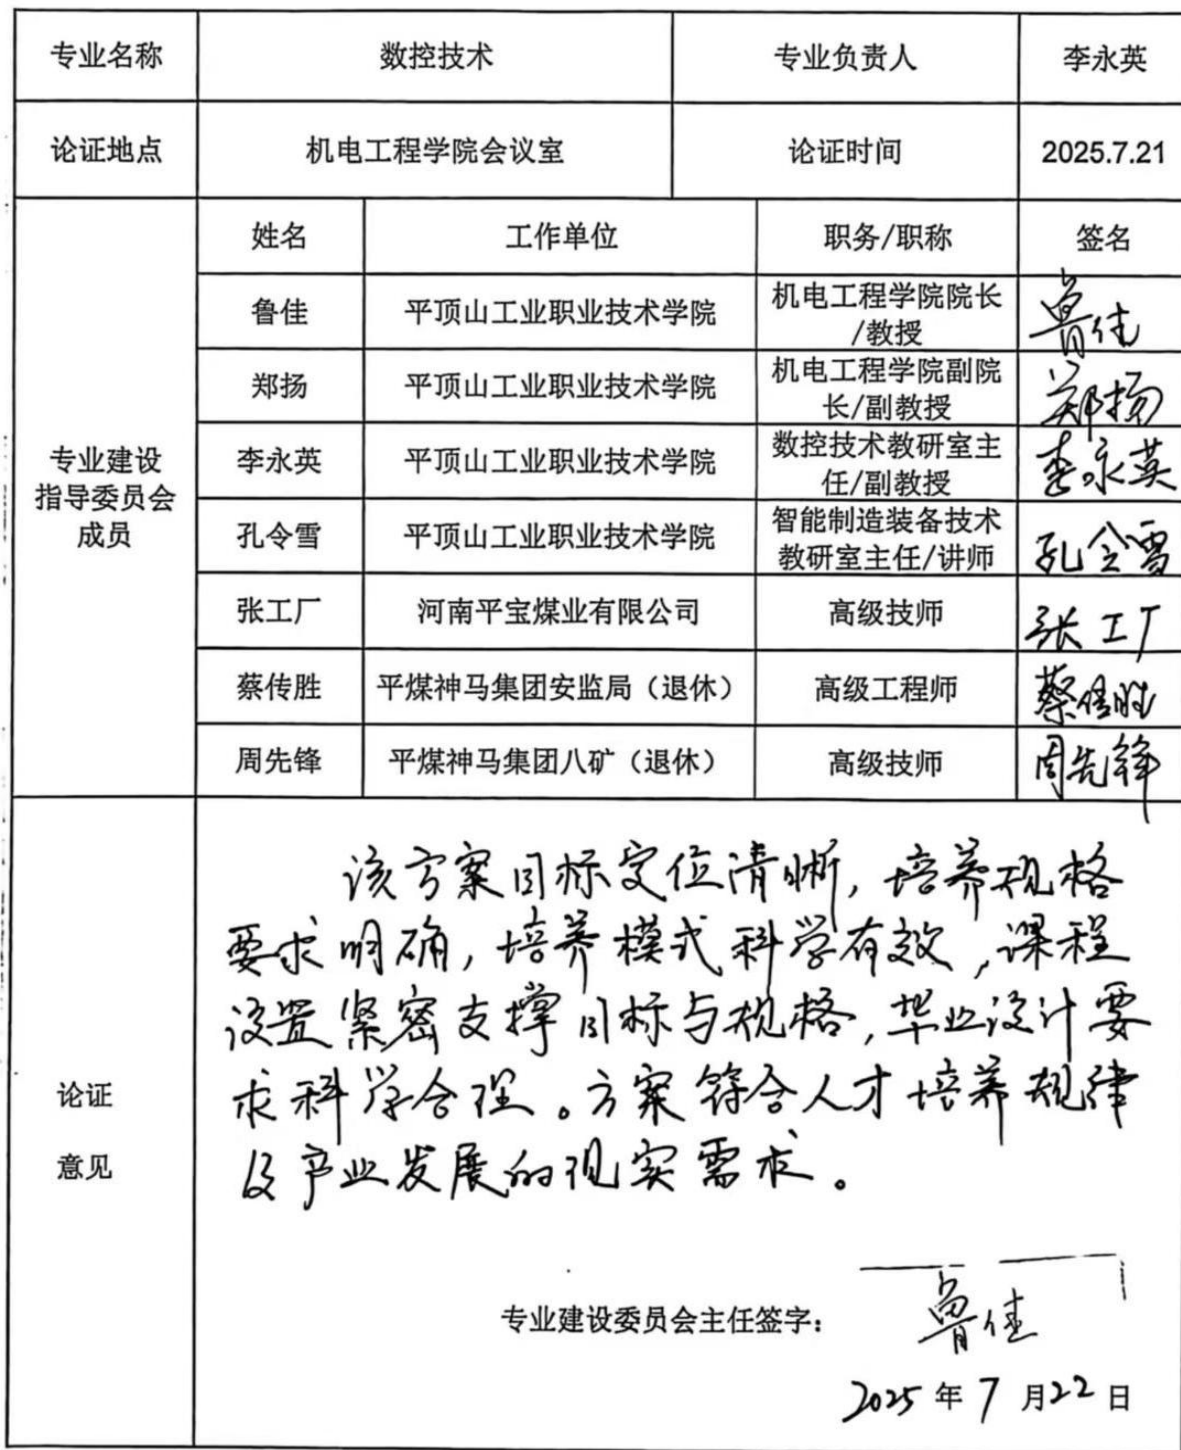 专业名称 数控技术 专业负责人 李永英
论证地点 机电工程学院会议室 论证时间 2025.7.21
专业建设
指导委员会
成员
姓名 工作单位 职务/职称 签名
鲁佳 平顶山工业职业技术学院 机电工程学院院长
/教授 鲁佳
郑扬 平顶山工业职业技术学院 机电工程学院副院
长/副教授 郑扬
李永英 平顶山工业职业技术学院 数控技术教研室主
任/副教授 李永英
孔令雪 平顶山工业职业技术学院 智能制造装备技术
教研室主任/讲师 孔令雪
张工厂 河南平宝煤业有限公司 高级技师 张工厂
蔡传胜 平煤神马集团安监局（退休） 高级工程师 蔡传胜
周先锋 平煤神马集团八矿（退休） 高级技师 周先锋
论证
意见
该方案目标定位清晰，培养规格
要求明确，培养模式科学有效，课程
设置紧密支撑目标与规格，毕业设计要
求科学合理。方案符合人才培养规律
及产业发展的现实需求。
专业建设委员会主任签字： 鲁佳
2025年7月22日